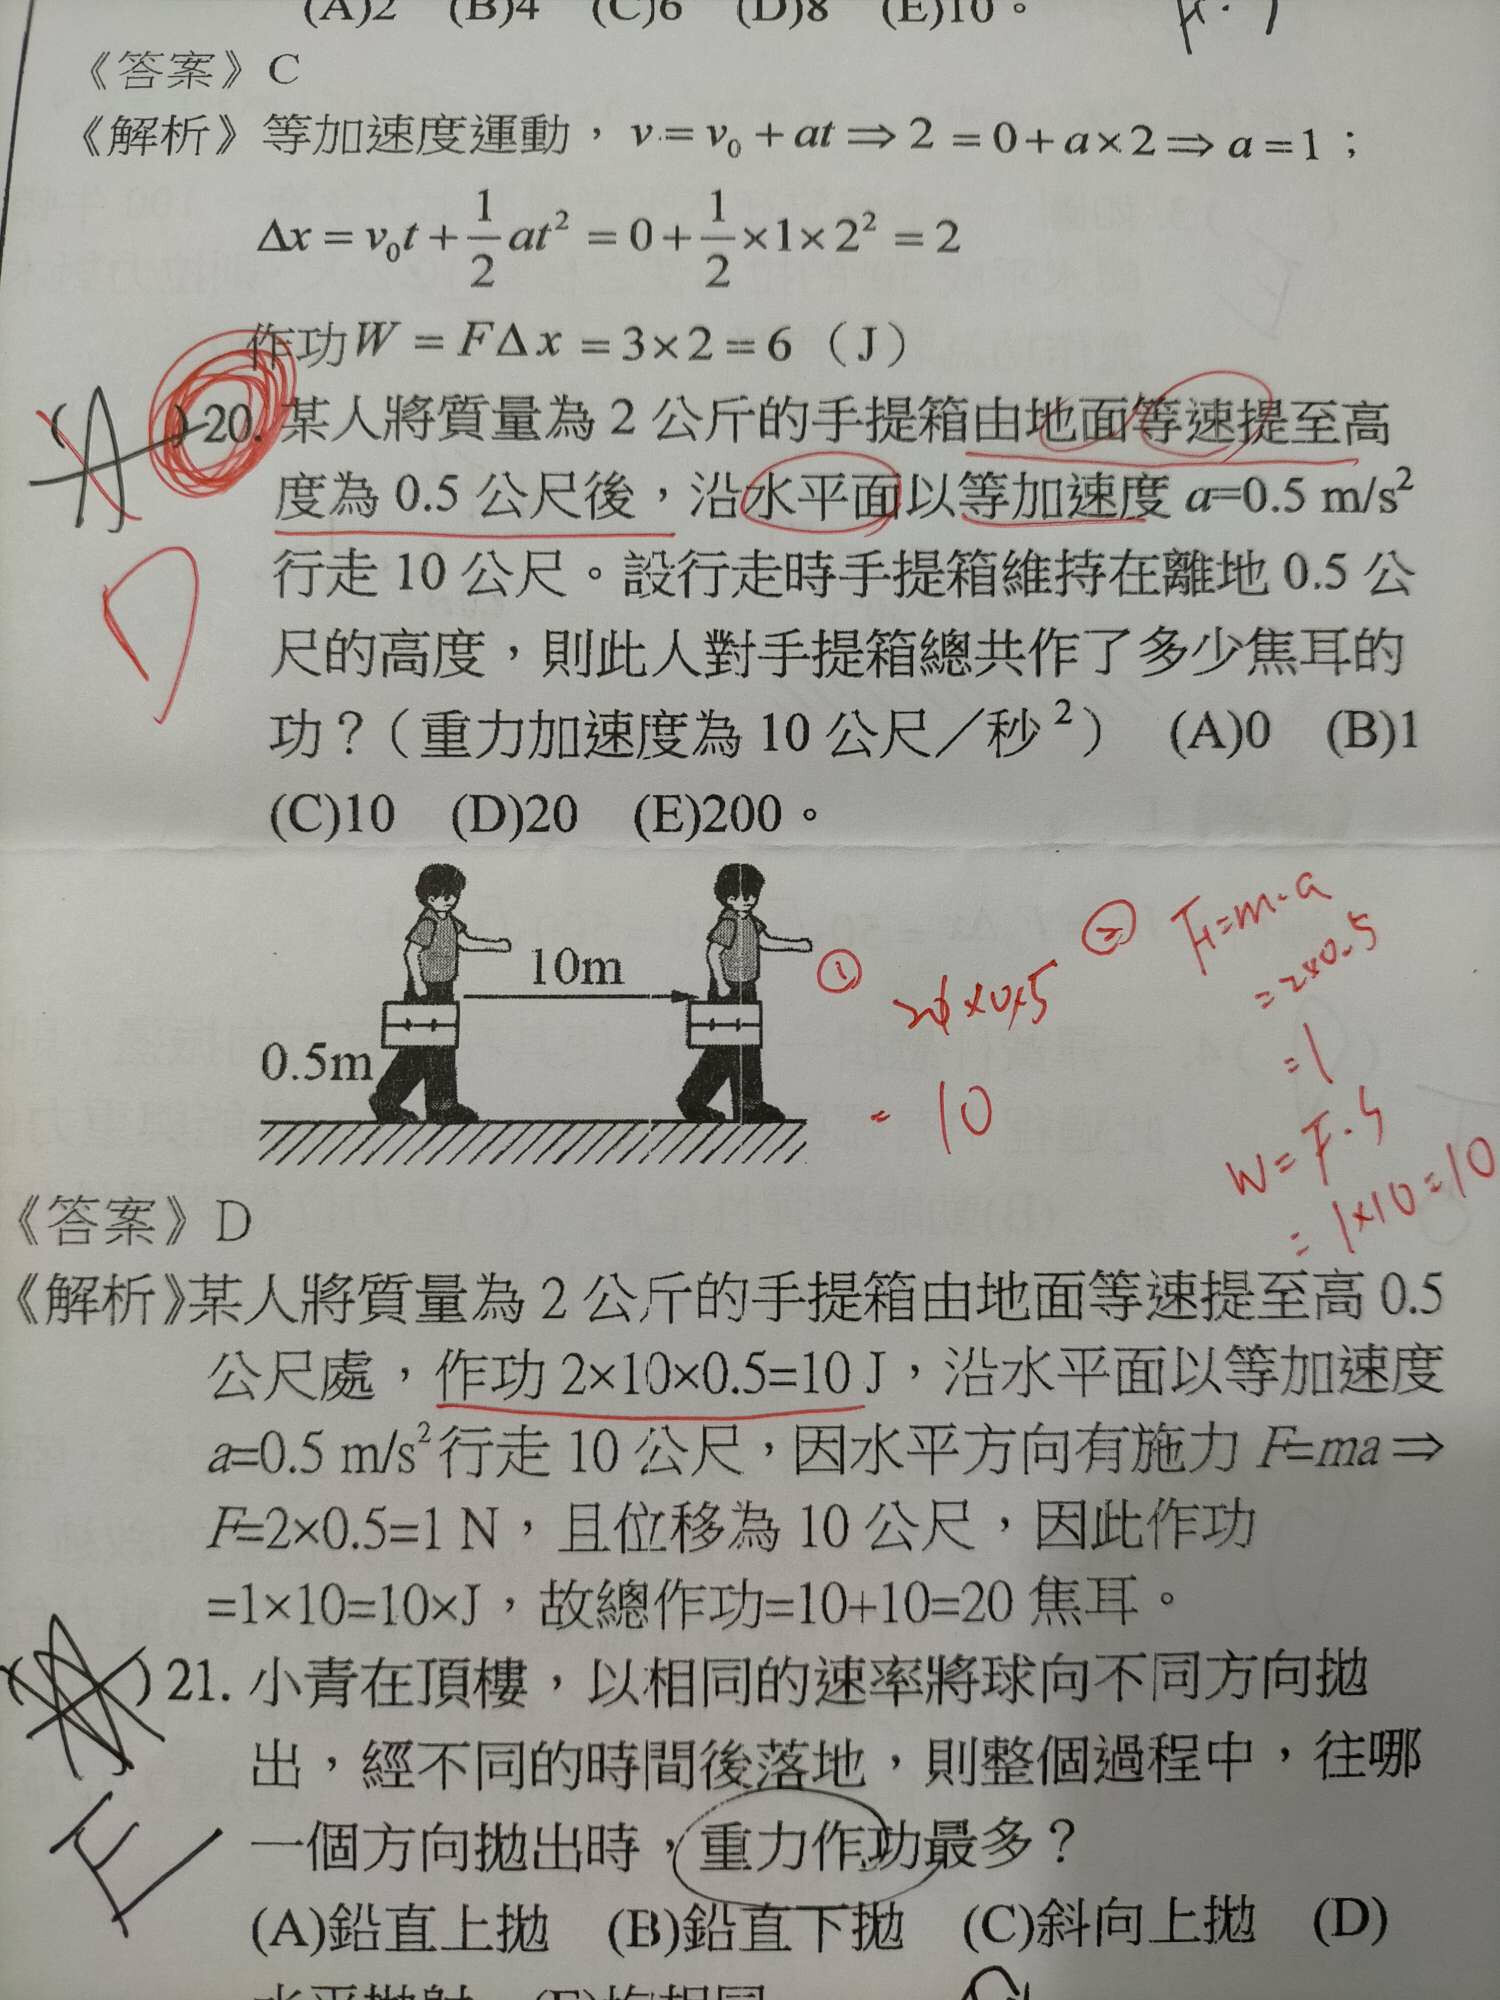 (A)2 (B)4 (C)6 (D)8 (E)10。
《答案》C
《解析》等加速度運動，v = v₀ + at ⇒ 2 = 0 + a × 2 ⇒ a = 1；
Δx = v₀t + 1/2 at² = 0 + 1/2 × 1 × 2² = 2
作功W = FΔx = 3 × 2 = 6（J）
(A)20. 某人將質量為 2 公斤的手提箱由地面等速提至高
度為 0.5 公尺後，沿水平面以等加速度 a=0.5 m/s²
D
行走 10 公尺。設行走時手提箱維持在離地 0.5 公
尺的高度，則此人對手提箱總共作了多少焦耳的
功？（重力加速度為 10 公尺／秒²） (A)0 (B)1
(C)10 (D)20 (E)200。
10m
0.5m
①
20×0.5
= 10
② F=m·a
=2×0.5
=1
W=F·S
=1×10=10
《答案》D
《解析》某人將質量為 2 公斤的手提箱由地面等速提至高 0.5
公尺處，作功 2×10×0.5=10 J，沿水平面以等加速度
a=0.5 m/s²行走 10 公尺，因水平方向有施力 F=ma⇒
F=2×0.5=1 N，且位移為 10 公尺，因此作功
=1×10=10×J，故總作功=10+10=20 焦耳。
( )21. 小青在頂樓，以相同的速率將球向不同方向拋
出，經不同的時間後落地，則整個過程中，往哪
E
一個方向拋出時，重力作功最多？
(A)鉛直上拋 (B)鉛直下拋 (C)斜向上拋 (D)
水平拋射 (E)皆相同